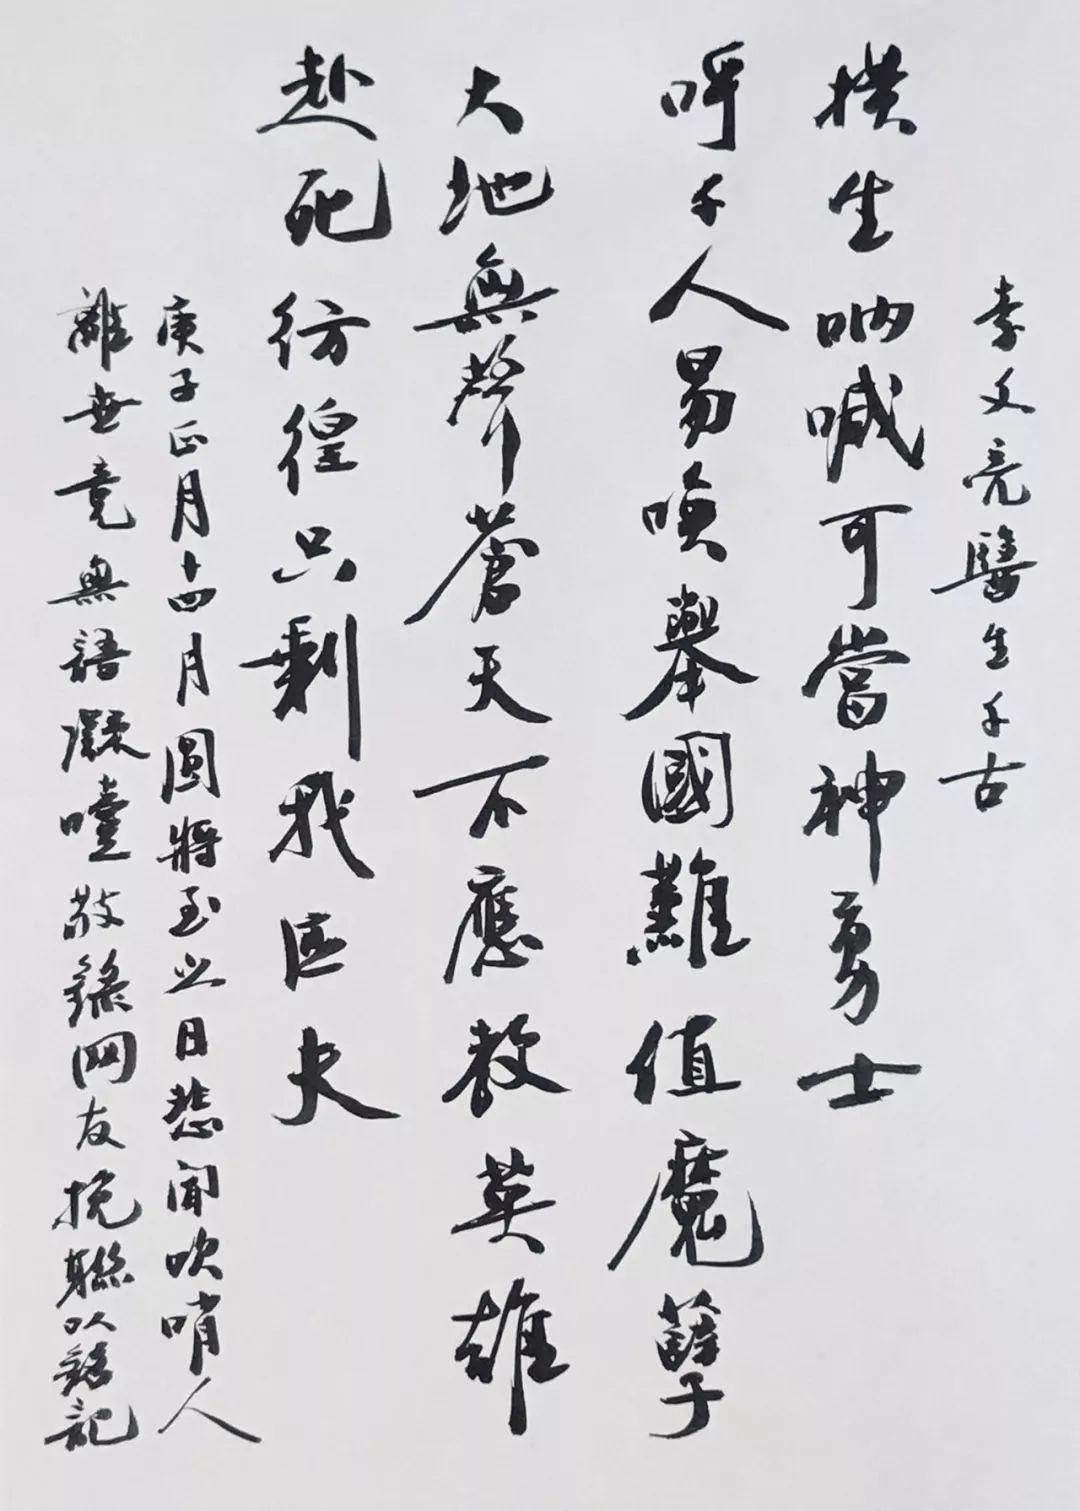 李文亮醫生千古
拼生吶喊可當神勇士
呼千人易喚舉國難值魔孽
大地無聲蒼天不應教英雄
赴死彷徨只剩我匹夫
庚子正月十四月圓將至之日悲聞吹哨人
離世竟無語凝噎敬錄网友挽聯以誌記